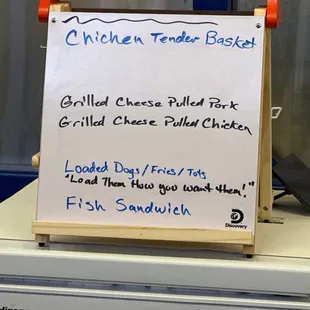 Chicken Tender Basket
Grilled Cheese Pulled Pork
Grilled Cheese Pulled Chicken
Loaded Dogs/Fries/Tots
"Load Them How you want them!"
Fish Sandwich
D
Discovery